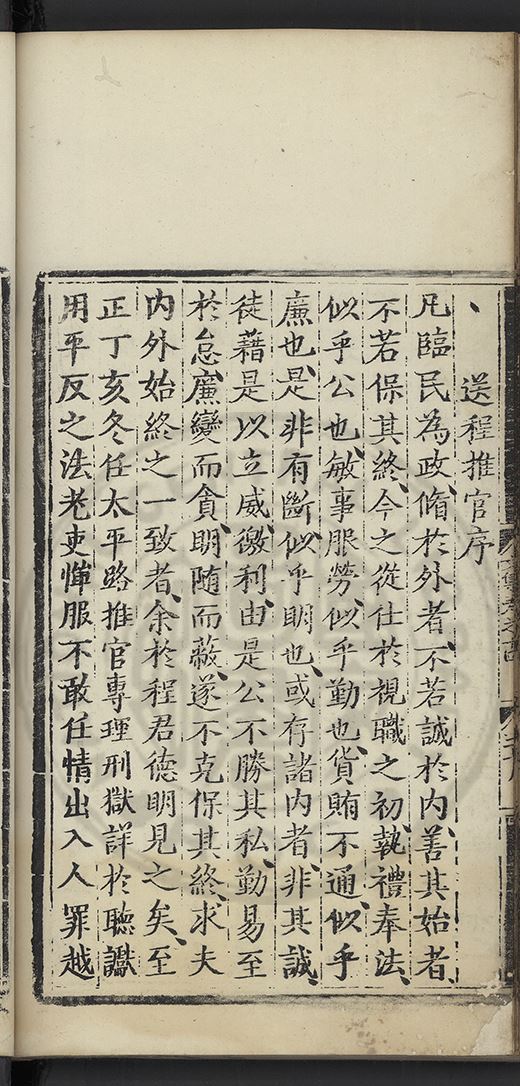 送程推官序
凡臨民為政脩於外者不若誠於内善其始者
不若保其終今之從仕於視職之初執禮奉法
似乎公也敏事服勞似乎勤也貨賄不通似乎
廉也是非有斷似乎明也或存諸内者非其誠
徒藉是以立威徼利由是公不勝其私勤易至
於怠廉變而貪明随而蔽遂不克保其終求夫
内外始終之一致者余於程君德明見之矣至
正丁亥冬任太平路推官專理刑獄詳於聽讞
用平反之法老吏惮服不敢任情出入人罪越